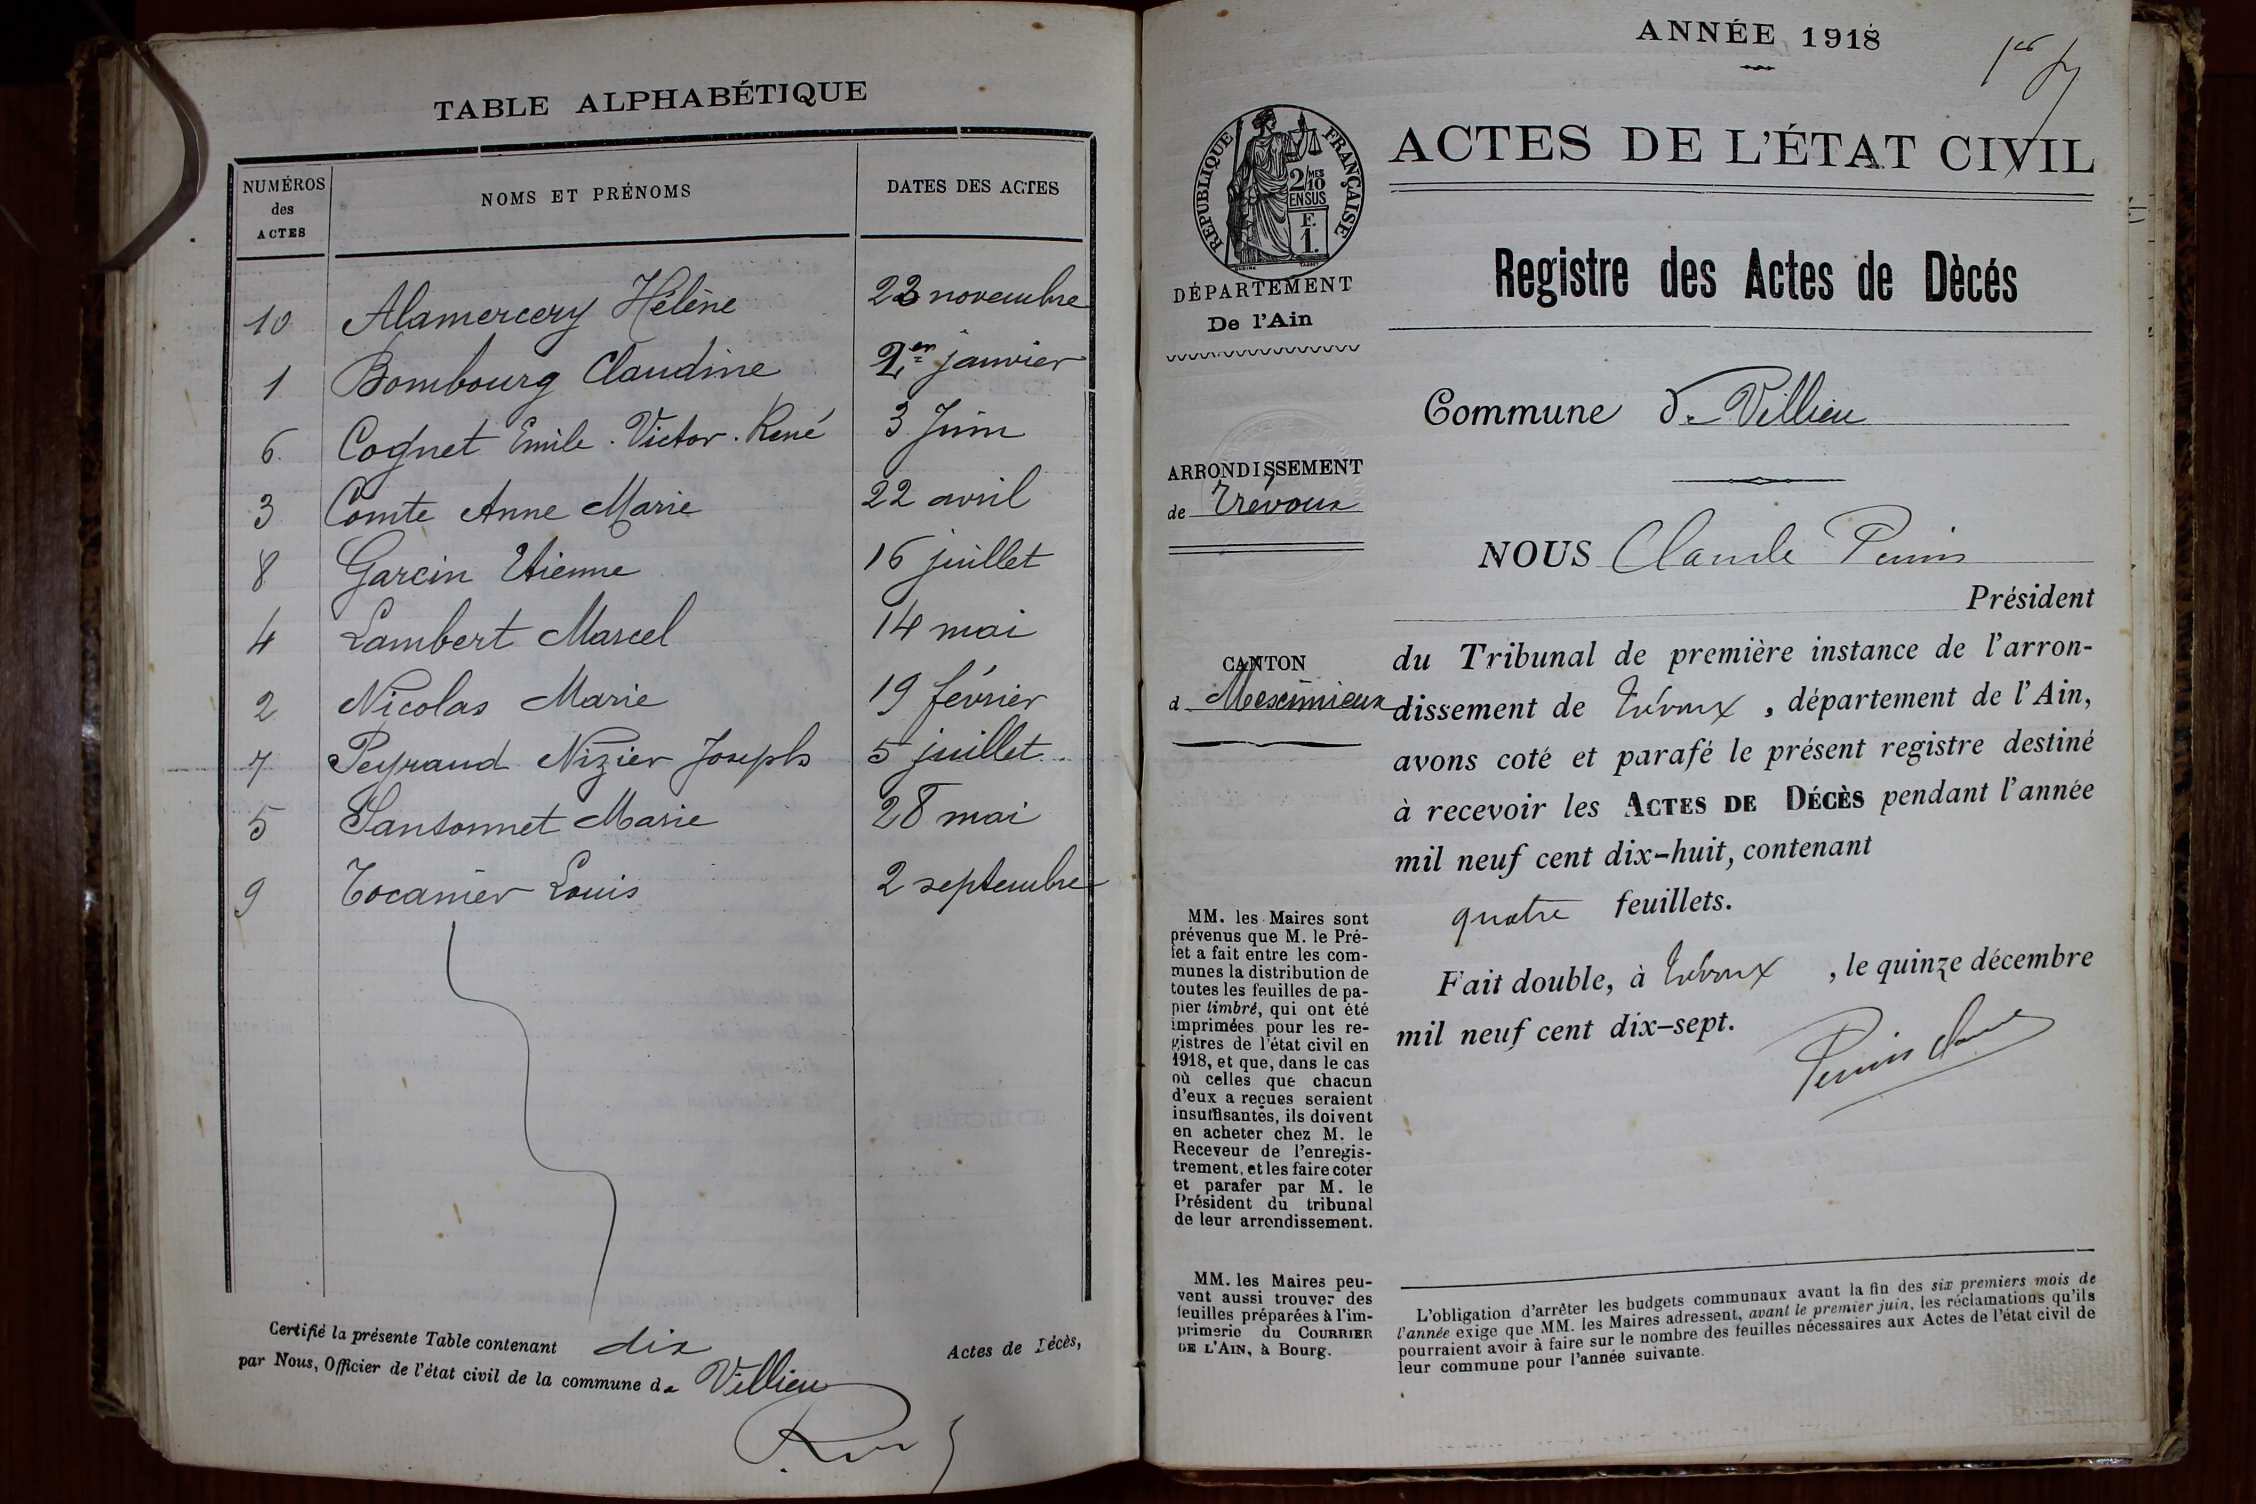 TABLE ALPHABÉTIQUE
NUMÉROS
des
ACTES
NOMS ET PRÉNOMS
DATES DES ACTES
10 Alamercery Hélène 23 novembre
1 Bombourg Claudine janvier
6 Cognet Emile . Victor . René 3 Juin
3 Comte Anne Marie 22 avril
8 Garcin Etienne 16 juillet
4 Lambert Marcel 14 mai
2 Nicolas Marie 19 février
7 Peyraud Nizier Joseph 5 juillet
5 Sansonnet Marie 28 mai
9 Tocanier Louis 2 septembre
Certifié la présente Table contenant dix Actes de Décès,
par Nous, Officier de l'état civil de la commune de Villieu
ANNÉE 1918
1er
ACTES DE L'ÉTAT CIVIL
RÉPUBLIQUE FRANÇAISE
2/10 MES
EN SUS
F.
1.
DÉPARTEMENT
De l'Ain
Registre des Actes de Dècés
Commune de Villieu
ARRONDISSEMENT
de Trévoux
NOUS Claude Perrin
Président
CANTON
d Meximieux
du Tribunal de première instance de l'arron-
dissement de Trévoux , département de l'Ain,
avons coté et parafé le présent registre destiné
à recevoir les ACTES DE DÉCÈS pendant l'année
mil neuf cent dix-huit, contenant
quatre feuillets.
Fait double, à Trévoux , le quinze décembre
mil neuf cent dix-sept.
MM. les Maires sont
prévenus que M. le Pré-
fet a fait entre les com-
munes la distribution de
toutes les feuilles de pa-
pier timbré, qui ont été
imprimées pour les re-
gistres de l'état civil en
1918, et que, dans le cas
où celles que chacun
d'eux a reçues seraient
insuffisantes, ils doivent
en acheter chez M. le
Receveur de l'enregis-
trement, et les faire coter
et parafer par M. le
Président du tribunal
de leur arrondissement.
MM. les Maires peu-
vent aussi trouver des
feuilles préparées à l'im-
primerie du COURRIER
DE L'AIN, à Bourg.
L'obligation d'arrêter les budgets communaux avant la fin des six premiers mois de
l'année exige que MM. les Maires adressent, avant le premier juin, les réclamations qu'ils
pourraient avoir à faire sur le nombre des feuilles nécessaires aux Actes de l'état civil de
leur commune pour l'année suivante.